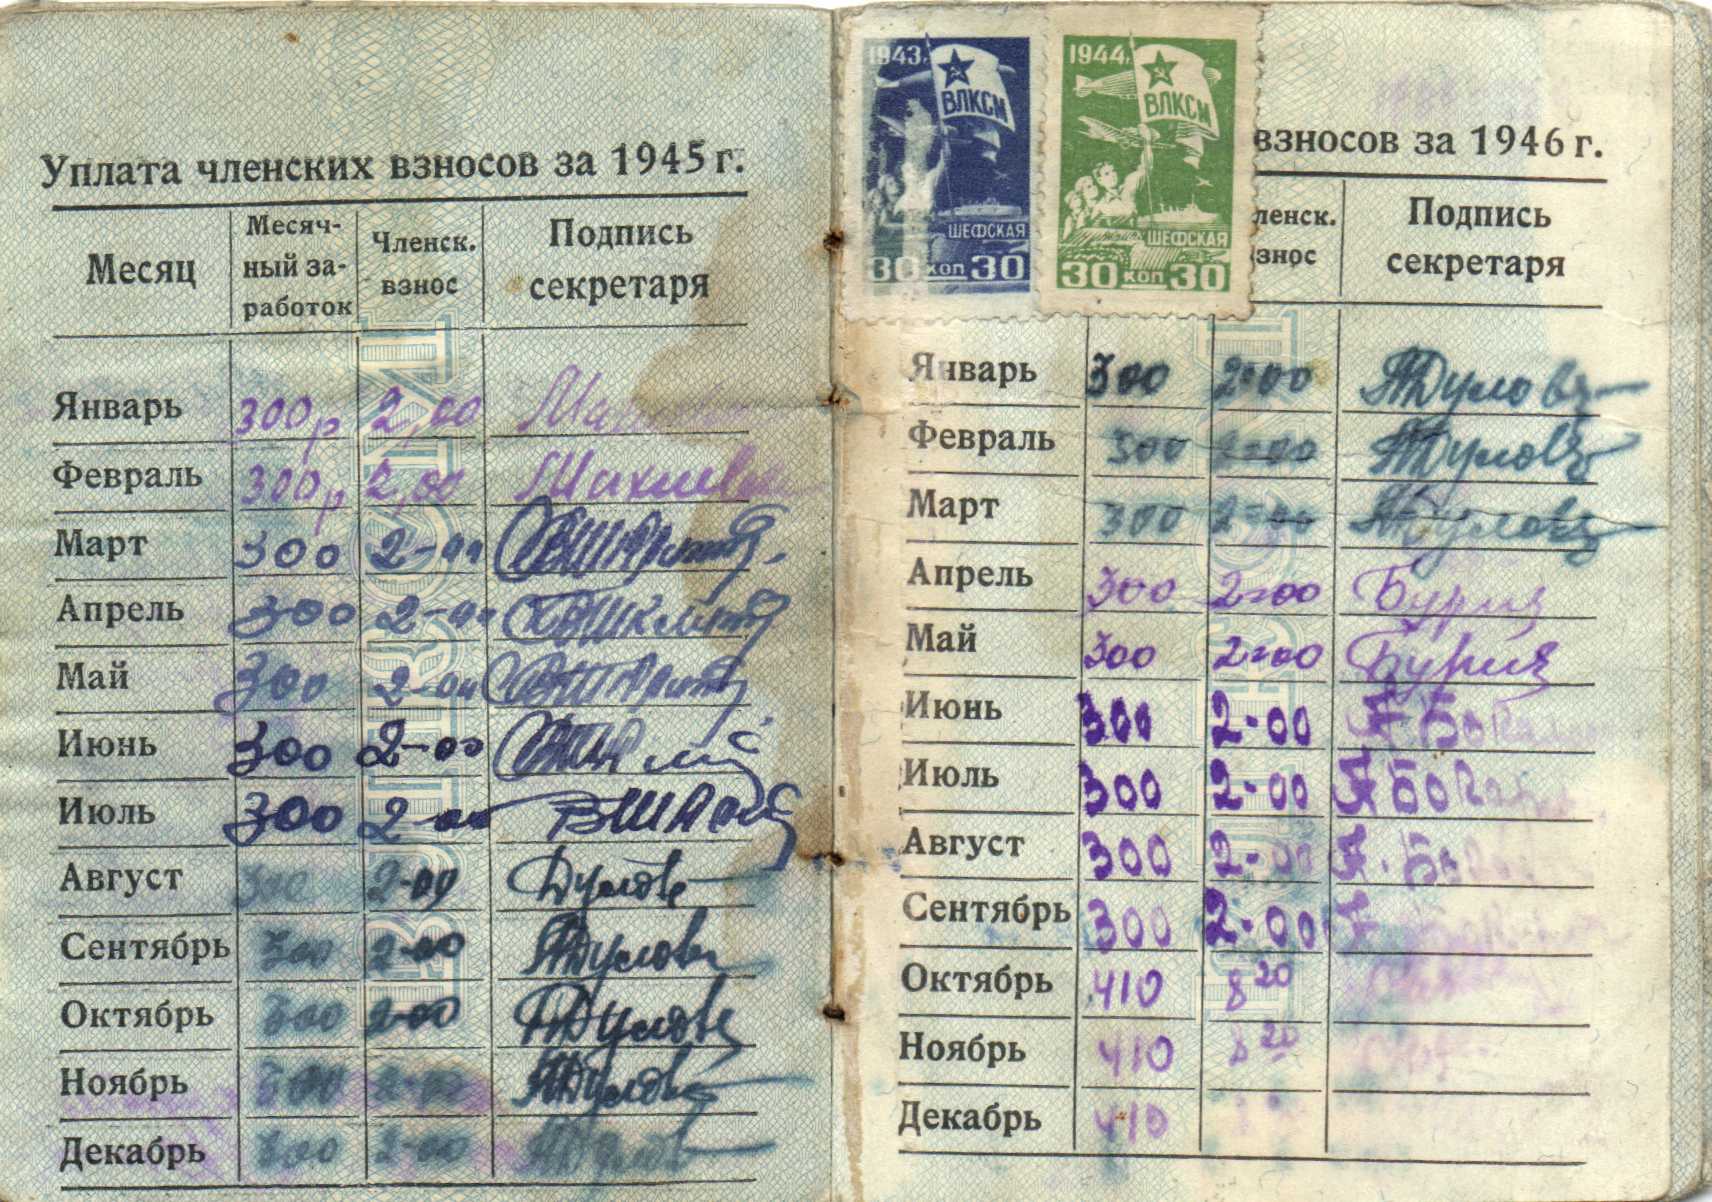 Уплата членских взносов за 1945 г.
Месяц
Месяч-
ный за-
работок
Членск.
взнос
Подпись
секретаря
Январь 300р 2,00
Февраль 300р 2,00
Март 300 2-00
Апрель 300 2-00
Май 300 2-00
Июнь 300 2-00
Июль 300 2-00
Август 300 2-00 Дулова
Сентябрь 300 2-00 Дулова
Октябрь 300 2-00 Дулова
Ноябрь 300 2-00 Дулова
Декабрь 300 2-00
1943г.
ВЛКСМ
ШЕФСКАЯ
30 коп 30
1944г.
ВЛКСМ
ШЕФСКАЯ
30 коп 30
взносов за 1946 г.
ленск.
знос
Подпись
секретаря
Январь 300 2=00 Дулова
Февраль 300 2=00 Дулова
Март 300 2=00 Дулова
Апрель 300 2=00
Май 300 2=00
Июнь 300 2-00
Июль 300 2-00
Август 300 2-00
Сентябрь 300 2-00
Октябрь 410 8 20
Ноябрь 410 8 20
Декабрь 410